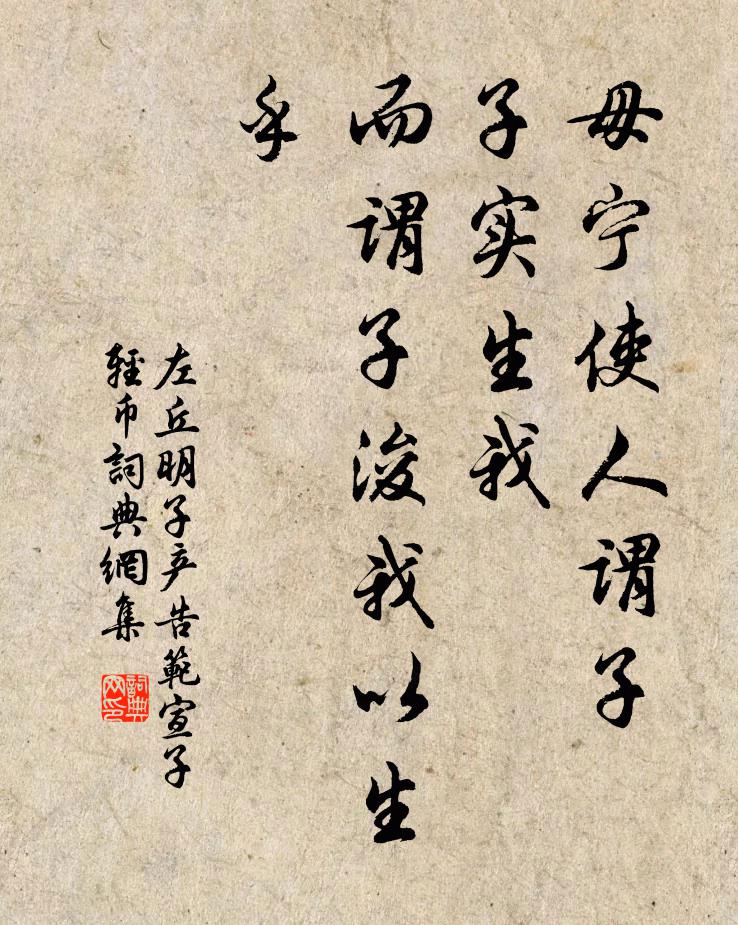 毋宁使人谓子
子实生我
而谓子浚我以生
乎
左丘明子产告範宣子
輕币詞典網集
詞典网印